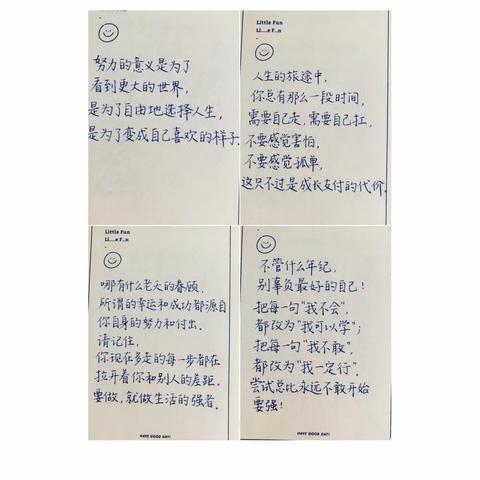 努力的意义是为了
看到更大的世界，
是为了自由地选择人生，
是为了变成自己喜欢的样子.
Little Fun
Li...e F..n
人生的旅途中，
你总有那么一段时间，
需要自己走，需要自己扛，
不要感觉害怕，
不要感觉孤单，
这只不过是成长支付的代价.
Little Fun
Li...e F..n
哪有什么老天的眷顾，
所谓的幸运和成功都源自
你自身的努力和付出.
请记住，
你现在多走的每一步都在
拉开着你和别人的差距.
要做，就做生活的强者.
HAVE GOOD DAY!
不管什么年纪，
别辜负最好的自己！
把每一句“我不会”，
都改为“我可以学”；
把每一句“我不敢”，
都改为“我一定行”.
尝试总比永远不敢开始
要强！
HAVE GOOD DAY!